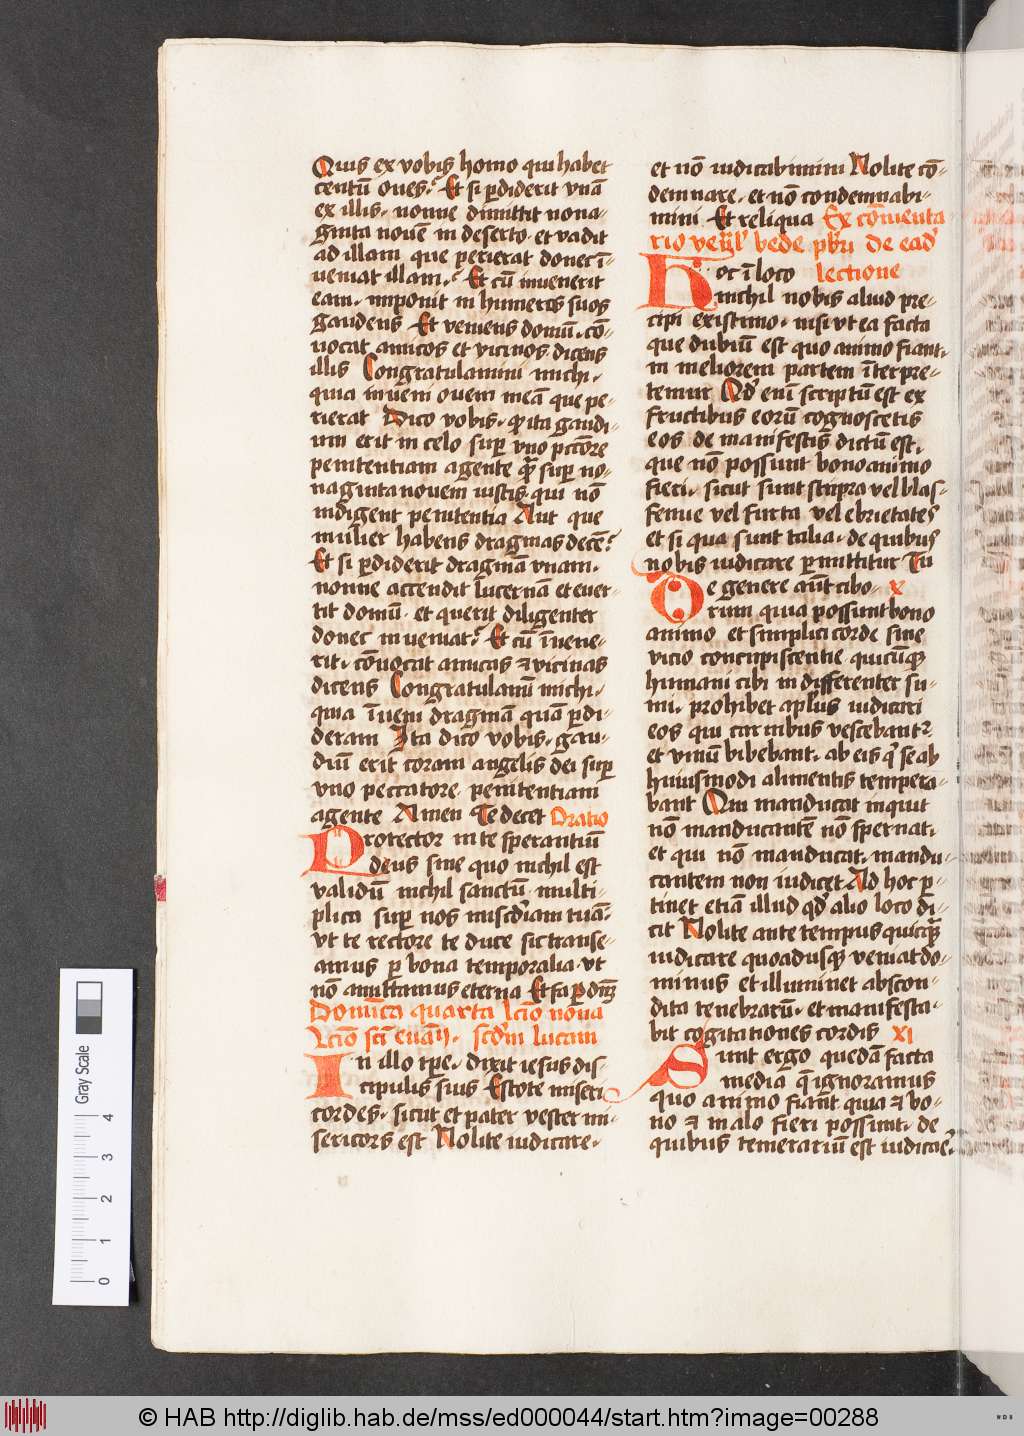 Quis ex vobis homo qui habet
centū oues? Et si p̄diderit vnā
ex illis. nonne dimittit nona-
ginta nouem in deserto. et vadit
ad illam que perierat donec ī-
ueniat illam? Et cū inuenerit
eam. imponit in humeros suos
gaudens Et veniens domū. cō-
uocat amicos et vicinos dicens
illis Congratulamini michi.
quia inueni ouem meā que pe-
rierat Dico vobis. ꝙ ita gaudi-
um erit in celo sup̄ vno pctōre
penitentiam agente qm̄ sup̄ no-
naginta nouem iustis qui nō
indigent penitentia Aut que
mulier habens dragmas decē?
Et si p̄diderit dragmā vnam.
nonne accendit lucernam et euer-
tit domū. et querit diligenter
donec inueniat? Et cū īuene-
rit. cōuocat amicas ⁊ vicinas
dicens Congratulamī michi.
quia īueni dragmā quā p̄di-
deram Ita dico vobis. gau-
diū erit coram angelis dei sup̄
vno peccatore penitentiam
agente Amen Te decet Oratio
Protector in te sperantiū
deus sine quo nichil est
validū nichil sanctū. multi-
plica sup̄ nos mis̄cdiam tuā.
vt te rectore te duce sic transe-
amus p̄ bona temporalia. vt
nō amittamus eterna Et fa p̄ dn̄m
Domīca quarta lcio noua
Lcio sci euāii. scd̄m lucam
In illo tpe. dixit iesus dis-
cipulis suis Estote miseri
cordes. sicut et pater vester mi-
sericors est Nolite iudicare.
et nō iudicabimini Nolite cō-
demnare. et nō condemnabi-
mini Et reliqua Ex cōmenta
rio ven̄l bede pbr̄i de ead̄
Hoc ī loco lectione
nichil nobis aliud pre-
cipi existimo. nisi vt ea facta
que dubiū est quo animo fiant.
in meliorem partem īterpre-
temur Qd̄ enī scriptū est ex
fructibus eorū cognoscetis
eos de manifestis dictū est.
que nō possunt bono animo
fieri. sicut sunt stupra vel blas-
femie vel furta vel ebrietates
et si qua sunt talia. de quibus
nobis iudicare p̄mittitur Tu
De genere aūt cibo- x
rum quia possunt bono
animo et simplici corde sine
vicio concupiscentie quicūqꝫ
humani cibi indifferenter su-
mi. prohibet apl̄us iudicari
eos qui carnibus vescebantur
et vinū bibebant. ab eis q̄ se ab
huiusmodi alimentis tempera-
bant Qui manducat inquit
nō manducantē nō spernat.
et qui nō manducat. mandu-
cantem non iudicet Ad hoc p̄-
tinet etiā illud qd̄ alio loco di-
cit Nolite ante tempus quicq̄
iudicare quoadusqꝫ veniat do-
minus et illuminet abscon-
dita tenebrarū. et manifesta-
bit cogitationes cordis XI
Sunt ergo quedā facta
media q̄ ignoramus
quo animo fiant quia ⁊ bo-
no ⁊ malo fieri possunt. de
quibus temerariū est iudicar̄e
Gray Scale
0 1 2 3 4
© HAB http://diglib.hab.de/mss/ed000044/start.htm?image=00288